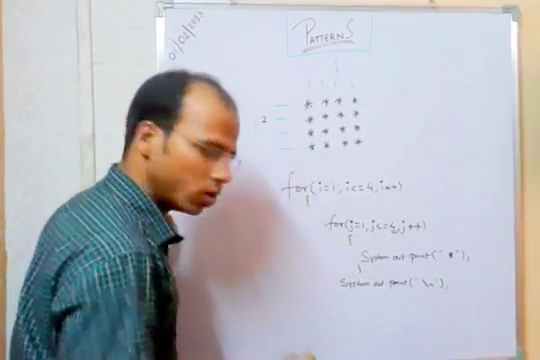 01/02/2033
PATTERNS
* * * *
2 * * * *
* * * *
* * * *
for(i=1, i<=4, i++)
{
for(j=1, j<=4, j++)
{
System.out.print(" * ");
}
System.out.print("\n");